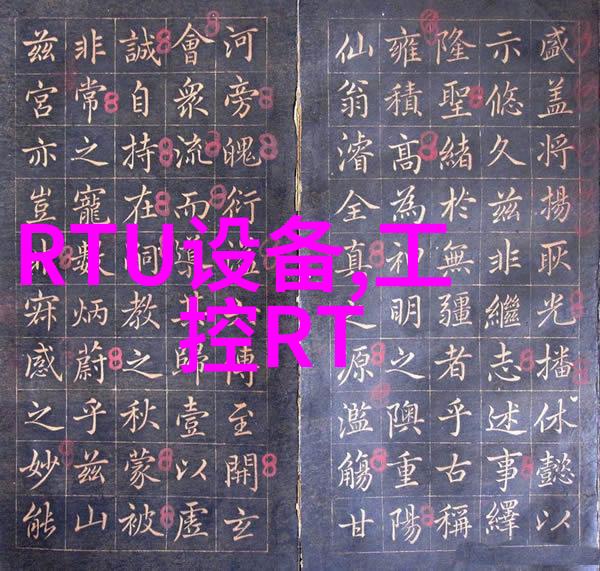 RTU设备,工
控RT
盛盖将揚耿光播休懿以
示悠久兹非繼志述事繹
隆聖緒於無疆者乎古稱
雍積高為初明之隩重陽
仙翁濬全真之源濫觴甘
河旁魄衍至開玄
會眾流而導其歸壹以虛
誠自持在祠教之秋蒙被
非常之寵數炳蔚乎兹山
兹宮亦豈寂感之妙能